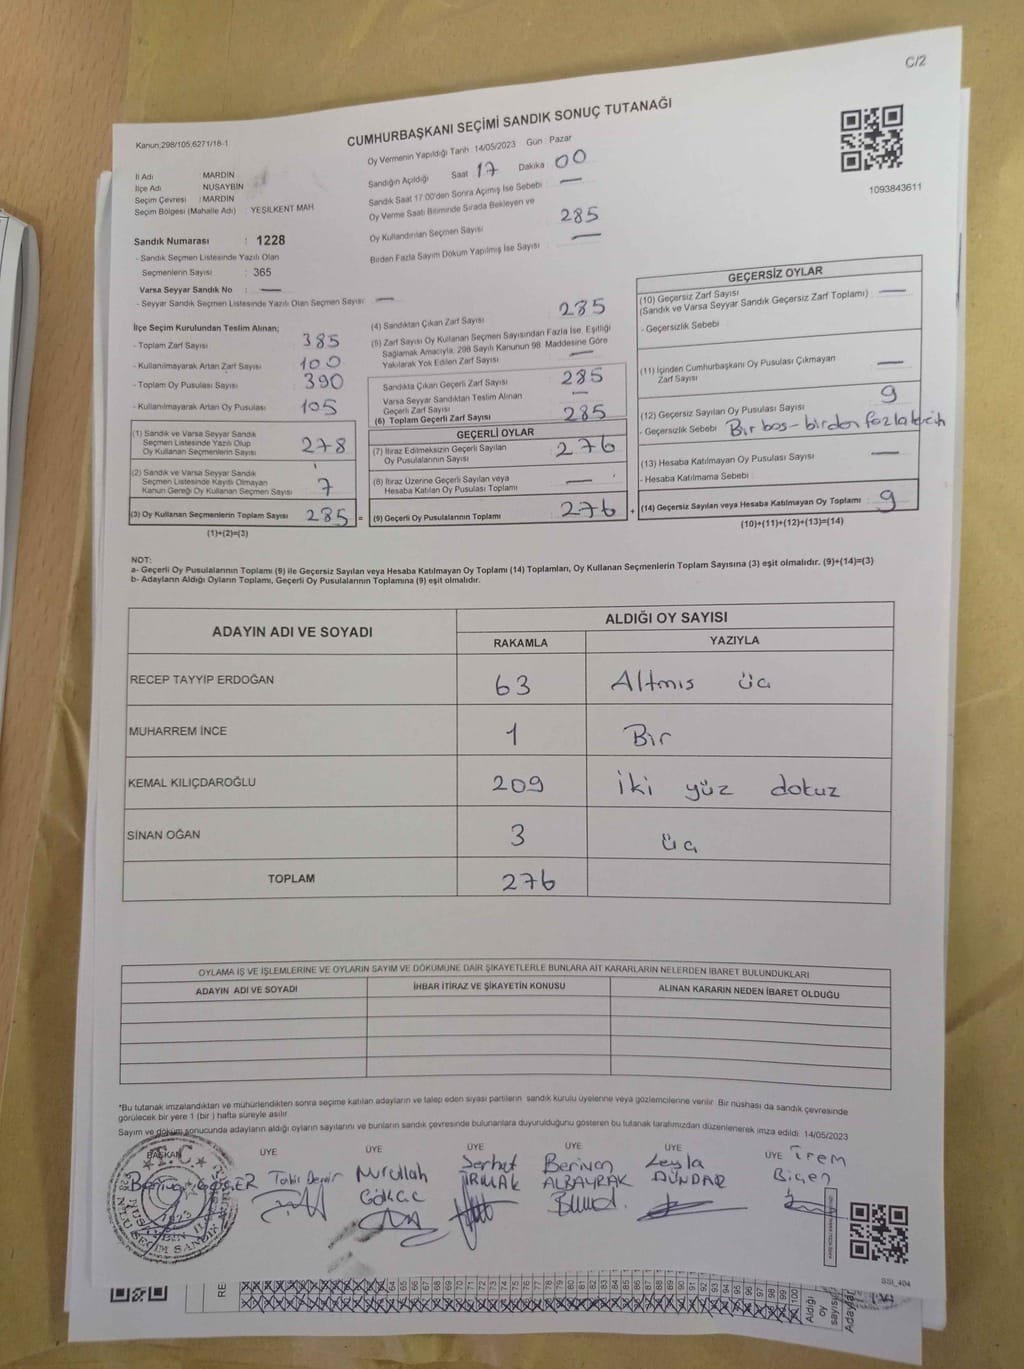 C/2
CUMHURBAŞKANI SEÇİMİ SANDIK SONUÇ TUTANAĞI
Kanun,298/105,6271/18-1
Oy Vermenin Yapıldığı Tarih : 14/05/2023 Gün : Pazar
Sandığın Açıldığı Saat 17 Dakika 00
Sandık Saat 17:00'den Sonra Açımış İse Sebebi : —
Oy Verme Saati Bitiminde Sırada Bekleyen ve
Oy Kullandırılan Seçmen Sayısı 285
Birden Fazla Sayım Döküm Yapılmış İse Sayısı : —
1093843611
İl Adı : MARDİN
İlçe Adı : NUSAYBİN
Seçim Çevresi : MARDİN
Seçim Bölgesi (Mahalle Adı) : YEŞİLKENT MAH.
Sandık Numarası : 1228
- Sandık Seçmen Listesinde Yazılı Olan
Seçmenlerin Sayısı : 365
Varsa Seyyar Sandık No : —
- Seyyar Sandık Seçmen Listesinde Yazılı Olan Seçmen Sayısı : —
İlçe Seçim Kurulundan Teslim Alınan;
- Toplam Zarf Sayısı : 385
- Kullanılmayarak Artan Zarf Sayısı : 100
- Toplam Oy Pusulası Sayısı : 390
- Kullanılmayarak Artan Oy Pusulası : 105
(1) Sandık ve Varsa Seyyar Sandık
Seçmen Listesinde Yazılı Olup
Oy Kullanan Seçmenlerin Sayısı 278
(2) Sandık ve Varsa Seyyar Sandık
Seçmen Listesinde Kayıtlı Olmayan
Kanun Gereği Oy Kullanan Seçmen Sayısı 7
(3) Oy Kullanan Seçmenlerin Toplam Sayısı 285 =
(1)+(2)=(3)
(4) Sandıktan Çıkan Zarf Sayısı 285
(5) Zarf Sayısı Oy Kullanan Seçmen Sayısından Fazla İse, Eşitliği
Sağlamak Amacıyla, 298 Sayılı Kanunun 98. Maddesine Göre
Yakılarak Yok Edilen Zarf Sayısı —
Sandıkta Çıkan Geçerli Zarf Sayısı 285
Varsa Seyyar Sandıktan Teslim Alınan
Geçerli Zarf Sayısı —
(6) Toplam Geçerli Zarf Sayısı 285
GEÇERLİ OYLAR
(7) İtiraz Edilmeksizin Geçerli Sayılan
Oy Pusulalarının Sayısı 276
(8) İtiraz Üzerine Geçerli Sayılan veya
Hesaba Katılan Oy Pusulası Toplamı —
(9) Geçerli Oy Pusulalarının Toplamı 276 +
GEÇERSİZ OYLAR
(10) Geçersiz Zarf Sayısı
(Sandık ve Varsa Seyyar Sandık Geçersiz Zarf Toplamı) —
- Geçersizlik Sebebi :
(11) İçinden Cumhurbaşkanı Oy Pusulası Çıkmayan
Zarf Sayısı —
(12) Geçersiz Sayılan Oy Pusulası Sayısı 9
- Geçersizlik Sebebi : Bir boş - birden fazla tercih
(13) Hesaba Katılmayan Oy Pusulası Sayısı —
- Hesaba Katılmama Sebebi :
(14) Geçersiz Sayılan veya Hesaba Katılmayan Oy Toplamı : 9
(10)+(11)+(12)+(13)=(14)
NOT:
a- Geçerli Oy Pusulalarının Toplamı (9) ile Geçersiz Sayılan veya Hesaba Katılmayan Oy Toplamı (14) Toplamları, Oy Kullanan Seçmenlerin Toplam Sayısına (3) eşit olmalıdır. (9)+(14)=(3)
b- Adayların Aldığı Oyların Toplamı, Geçerli Oy Pusulalarının Toplamına (9) eşit olmalıdır.
ADAYIN ADI VE SOYADI ALDIĞI OY SAYISI
RAKAMLA YAZIYLA
RECEP TAYYİP ERDOĞAN 63 Altmış üç
MUHARREM İNCE 1 Bir
KEMAL KILIÇDAROĞLU 209 İki yüz dokuz
SİNAN OĞAN 3 üç
TOPLAM 276
OYLAMA İŞ VE İŞLEMLERİNE VE OYLARIN SAYIM VE DÖKÜMÜNE DAİR ŞİKAYETLERLE BUNLARA AİT KARARLARIN NELERDEN İBARET BULUNDUKLARI
ADAYIN ADI VE SOYADI İHBAR İTİRAZ VE ŞİKAYETİN KONUSU ALINAN KARARIN NEDEN İBARET OLDUĞU
*Bu tutanak imzalandıktan ve mühürlendikten sonra seçime katılan adayların ve talep eden siyasi partilerin sandık kurulu üyelerine veya gözlemcilerine verilir. Bir nüshası da sandık çevresinde
görülecek bir yere 1 (bir ) hafta süreyle asılır.
Sayım ve döküm sonucunda adayların aldığı oyların sayılarını ve bunların sandık çevresinde bulunanlara duyurulduğunu gösteren bu tutanak tarafımızdan düzenlenerek imza edildi. 14/05/2023
BAŞKAN ÜYE ÜYE ÜYE ÜYE ÜYE ÜYE
Tahir Demir
Nurullah GÖKCE
Serhat IRMAK
Berivan ALBAYRAK
Leyla DÜNDAR
İrem Biçen
SSI_404
RE
64 65 66 67 68 69 70 71 72 73 74 75 76 77 78 79 80 81 82 83 84 85 86 87 88 89 90 91 92 93 94 95 96 97 98 99 100
Aldığı oy sayısı